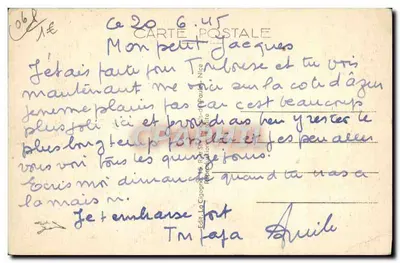 Ce 20 6.45
CARTE POSTALE
Mon petit Jacques
J'étais parti pour Toulouse et tu vois
maintenant me voici sur la cote d'azur
je ne me plains pas car c'est beaucoup
plus joli ici et je voudrais bien y rester le
plus longtemps possible et pas
vous voir tous les quinze jours.
Ecris moi dimanche quand tu iras a
la maison.
Je t'embrasse fort
Ton papa
1€